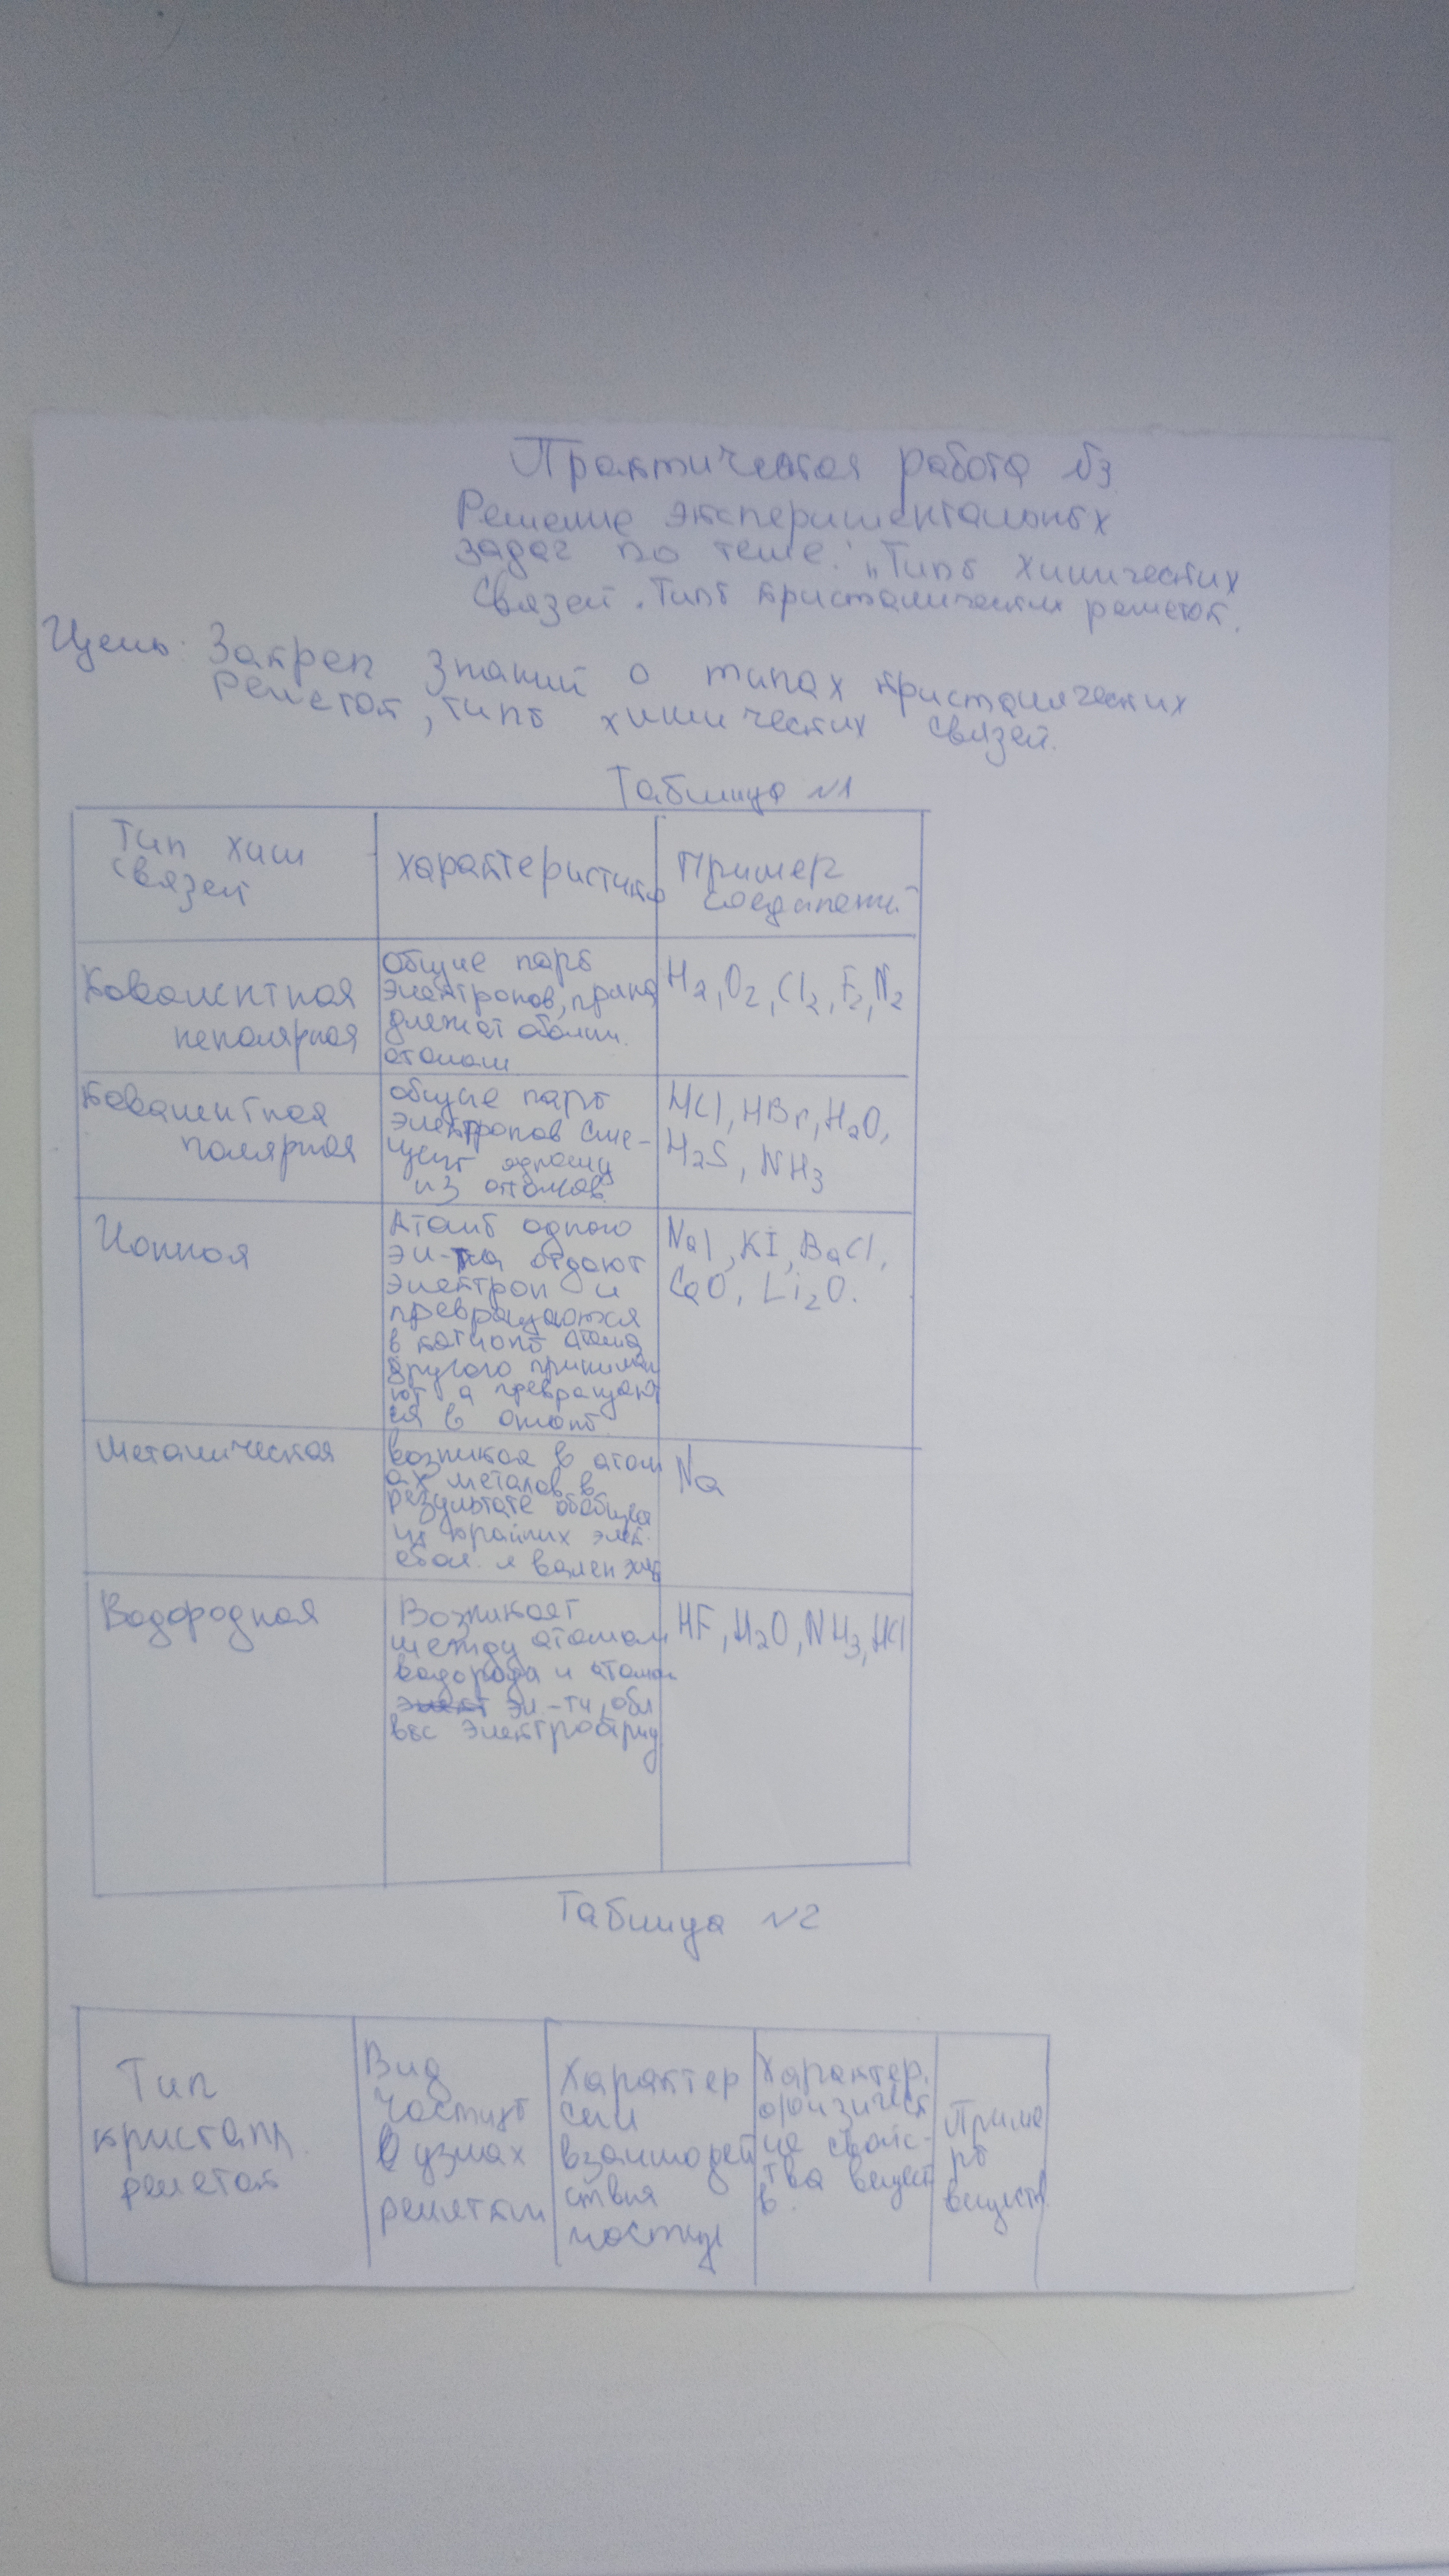 Практическая работа №3
Решение экспериментальных
задач по теме: „Типы химических
связей. Типы кристалических решеток.
Цель: Закреп знаний о типах кристалических
решеток, типы химических связей.
Таблица №1
Тип хим
связей
характеристика
Пример
соединений
Ковалентная
неполярная
общие пары
электронов, прина
длежат обоим
атомам
H2, O2, Cl2, F2, N2
Ковалентная
полярная
общие пары
электронов сме-
щены одному
из атомов.
HCl, HBr, H2O,
H2S, NH3
Ионная
Атомы одного
эл-та отдают
электрон и
превращаются
в катионы атомы
другого принима
ют а превращают
ся в анионы
NaI, KI, BaCl,
CaO, Li2O.
Металическая
возникая в атом
ах металов в
результате
крайних элек.
Na
Водородная
Возникает
между атомам
водорода и атомам
эл-ти, обл
выс электроотриц
HF, H2O, NH3, HCl
Таблица №2
Тип
кристалл.
решеток
Вид
частиц
в узлах
решетки
Характер
силы
взаимодей
ствия
частиц
Характер.
физическ
ие свойс-
тва вещест
в.
Приме
ры
веществ